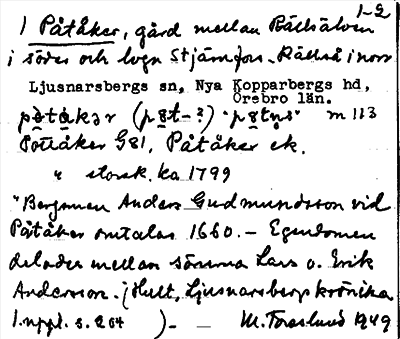 1-2
1 Påtåker, gård mellan Rällsälven
i söder och lvgn Stjärnfors - Rällså i norr
Ljusnarsbergs sn, Nya Kopparbergs hd,
Örebro län.
"pǫtn̥s" m 113
Påtåker G81, Påtåker ek.
" storsk. ka 1799
"Bergsmen Anders Gudmundsson vid
Påtåker omtalas 1660. – Egendomen
delades mellan sönerna Lars o. Erik
Andersson. (Hult, Ljusnarsbergskrönika
1. uppl. s. 264 ). – – M. Forslund 1949